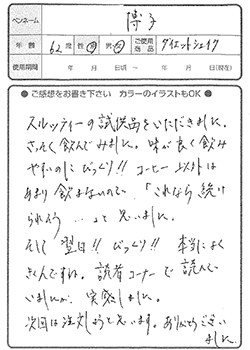 ペンネーム 博子
年齢 62歳 男 女 ご使用商品 ダイエットシェイク
使用期間 年 月 日頃 ~ 年 月 日(現在)
● ご感想をお書き下さい カラーのイラストもOK ●
スルッティーの試供品をいただきました。
さっそく飲んでみました。味が良く飲み
やすいのにびっくり!! コーヒー以外は
あまり飲まないので、「これなら続け
られそう…」と思いました。
そして翌日!! びっくり!! 本当によく
でますね。読者コーナーで読んで
いましたが、実感しました。
次回は注文しようと思います。ありがとうござい
ました。